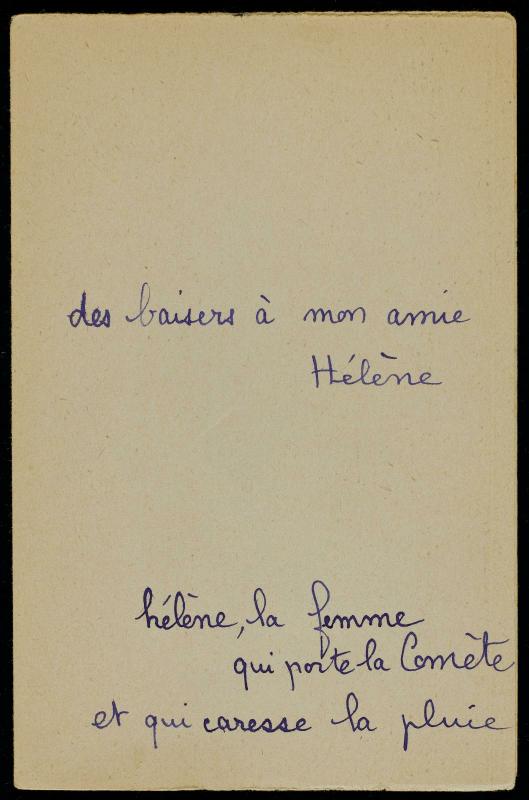 des baisers à mon amie
Hélène
hélène, la femme
qui porte la Comète
et qui caresse la pluie